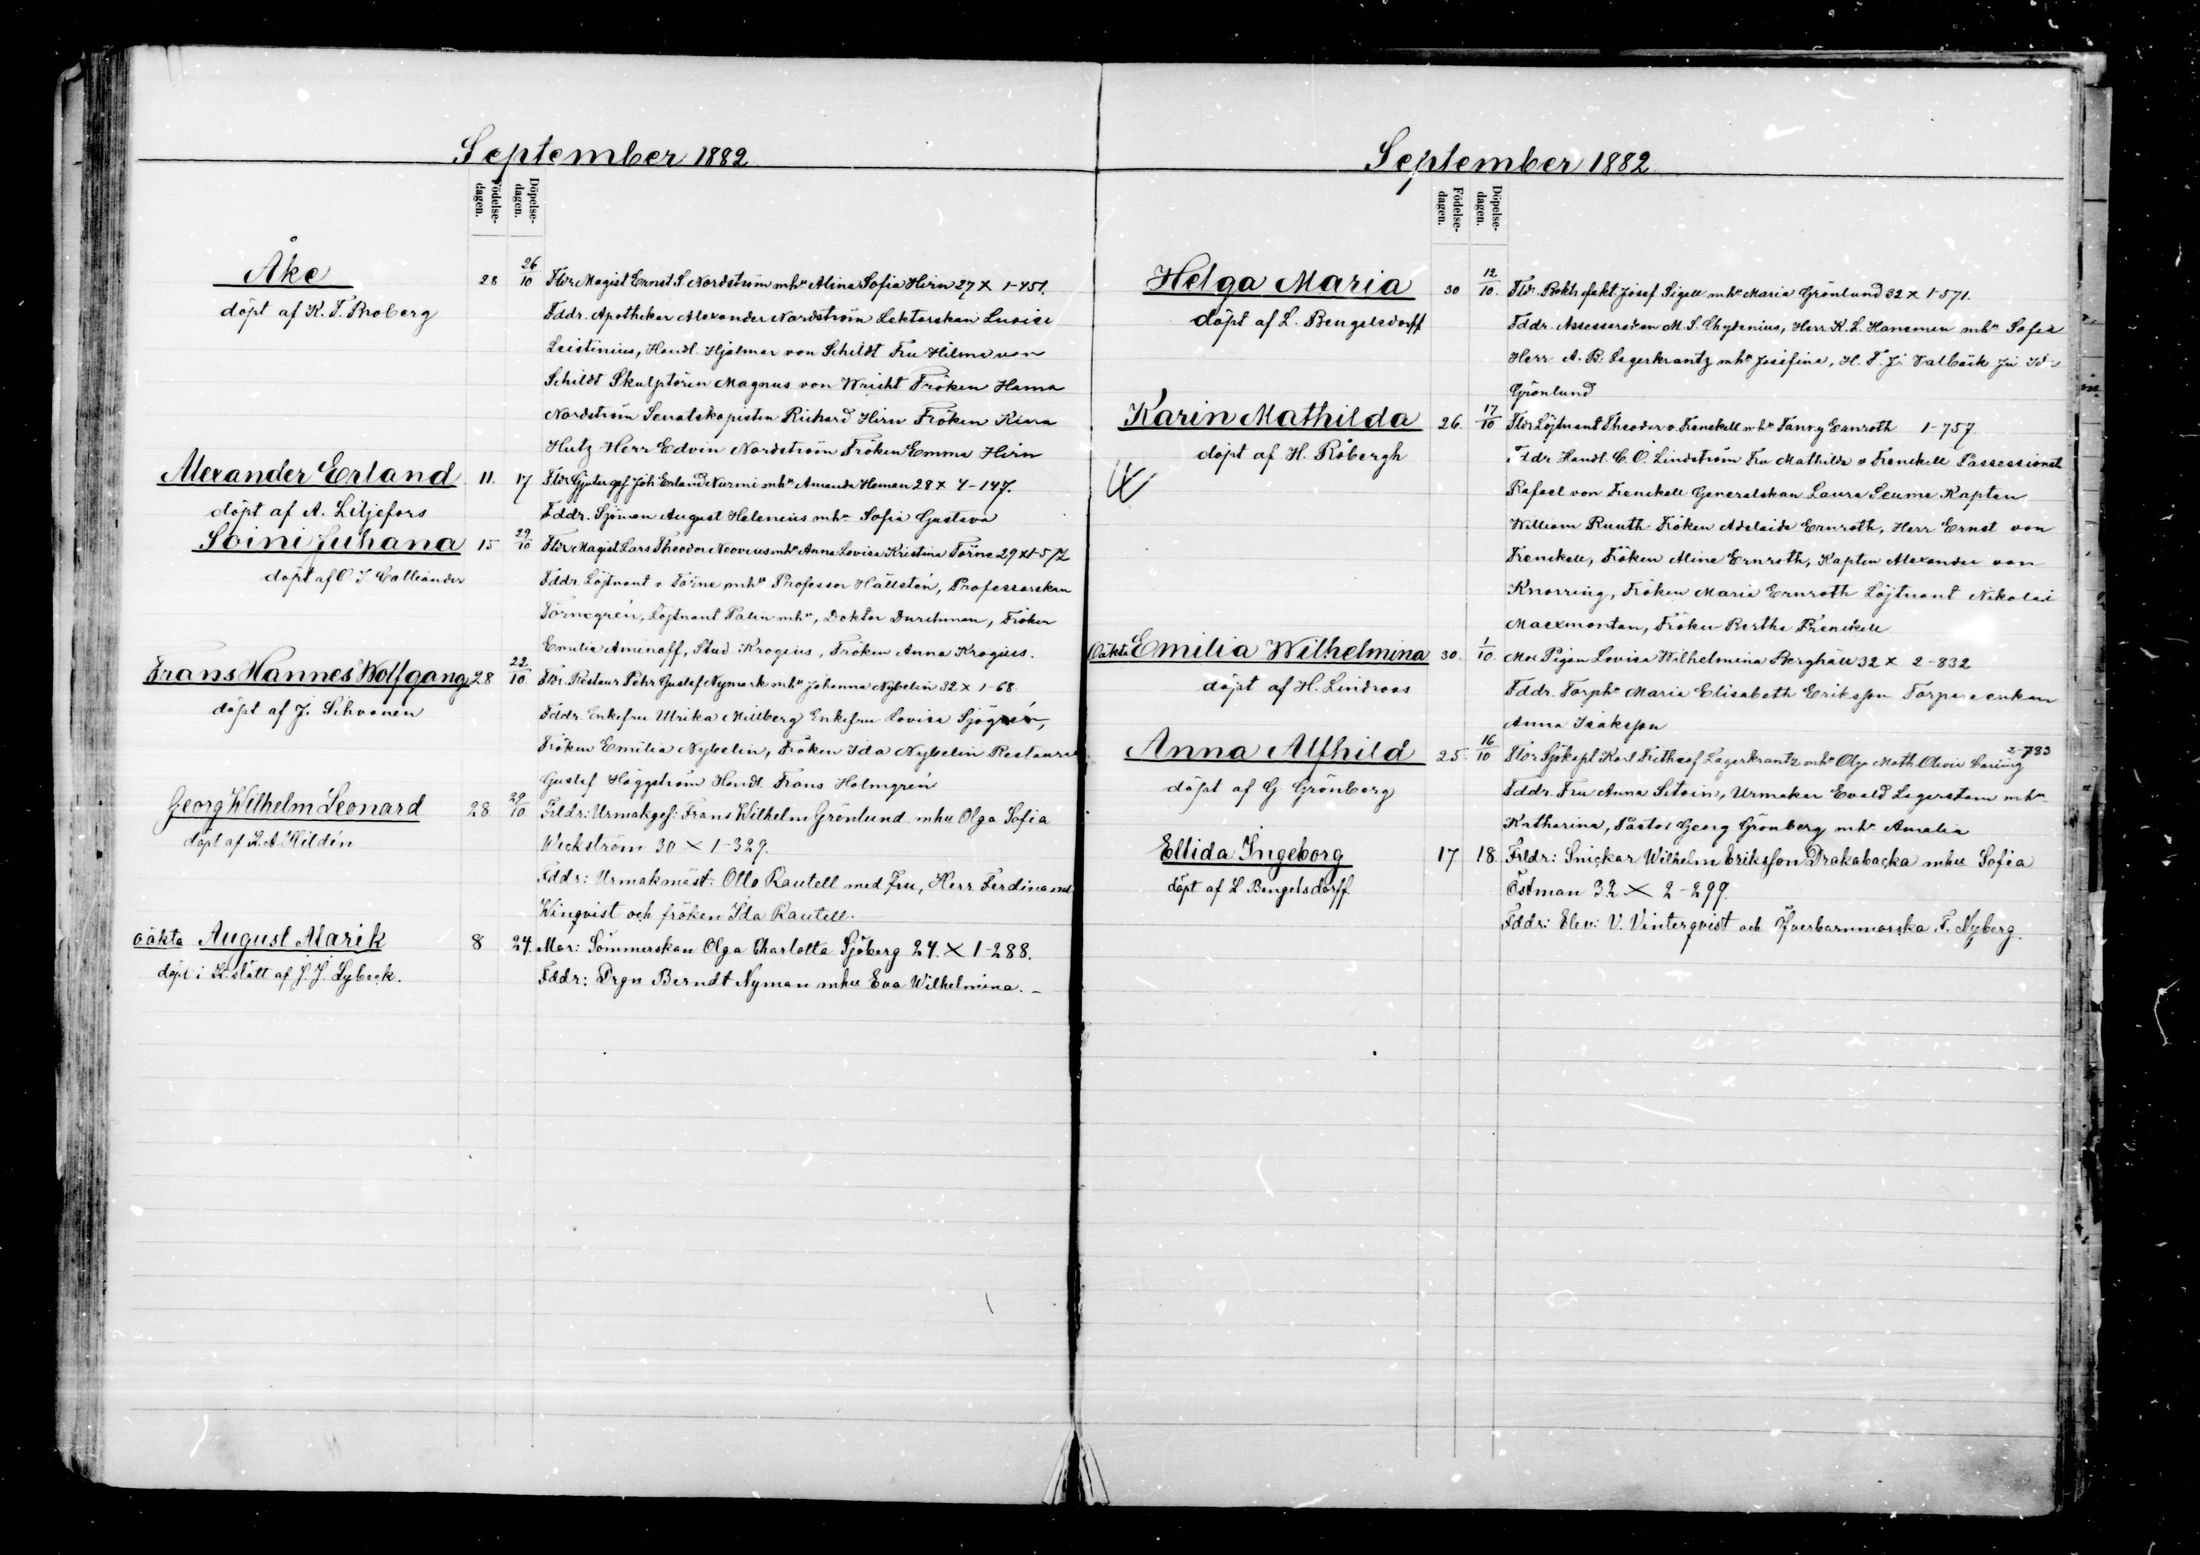 September 1882
Födelse-dagen.
Döpelse-dagen.
Åke 28 26/10 Fldr Magist Ernst S. Nordström mhu Alina Sofia Hirn 27 × 1-451.
döpt af K. T. Broberg Fddr. Apothekar Alexander Nordström Lektorskan Lovise
Leistenius, Handl. Hjalmar von Schildt Fru Hilma von
Schildt Skulptören Magnus von Wright Fröken Hanna
Nordström Senatskopisten Richard Hirn Fröken
Hutz Herr Edvin Nordström Fröken Emma Hirn
Alexander Erland 11. 17 Fldr Gjutar ges. Joh Erland Nurmi mhu Amanda Heman 28 × 4-147.
döpt af A. Liljefors Fddr. Sjöman August Helenius mhu Sofia Gustava
Soini Juhana 15 29/10 Fldr Magist Lars Theodor Neovius mhu Anna Lovisa Kristina Törne 29 × 1-572
döpt af O. I. Colliander Fddr. Löjtnant v Törne mhu Professor Hällstén, Professorskan
Törnegren, Löjtnant Palin mhu, Doktor Durchman, Fröken
Emilia Aminoff, Stud. Krogius, Fröken Anna Krogius.
Frans Hannes Wolfgang 28 22/10 Fldr. Restaur Pehr Gustaf Nymark mhu Johanna Nybelin 32 × 1-68.
döpt af J. Sihvonen Fddr. Enkefru Ulrika Millberg Enkefru Lovisa Sjögrén,
Fröken Emilia Nybelin, Fröken Ida Nybelin Restaura
Gustaf Häggström Handl. Frans Holmgrén
Georg Wilhelm Leonard 28 29/10 Frldr: Urmakges: Frans Wilhelm Grönlund mhu Olga Sofia
döpt af K. A. Hildén Weckström 30 × 1-329.
Fddr: Urmakmäst: Otto Rautell med Fru, Herr Ferdinand
Winqvist och fröken Ida Rautell.
oäkta August Alarik 8 24. Mor: Sömmerskan Olga Charlotta Sjöberg 24. × 1-288.
döpt i K.slätt af J. J. Lybeck. Fddr: Drgn Berndt Nyman mhu Eva Wilhelmina.
September 1882
Födelse-dagen.
Döpelse-dagen.
Helga Maria 30 12/10. Fldr. Bokh fakt Josef Sigell mhu Maria Grönlund 32 × 1-571.
döpt af L. Bengelsdorff Fddr. Assessorskan M. S. Chydenius, Herr K. L. Hanemen mhu Sofia
Herr A. B. Lagerkrantz mhu Josefina, H. F. J. Valbäck
Grönlund
Karin Mathilda 26. 17/10 Fldr Löjtnant Theodor v. Frenckell mhu Fanny Ernroth 1-757.
döpt af H. Råbergh Fddr Handl. C. O. Lindström Fru Mathilda v Frenckell Possessionat
Rafael von Frenckell Generalskan Laura Seume Kapten
William Ruuth Fröken Adelaide Ernroth, Herr Ernst von
Frenckell, Fröken Aline Ernroth, Kapten Alexander von
Knorring, Fröken Maria Ernroth Löjtnant Nikolai
Maexmontan, Fröken Bertha Frenckell
Oäkta Emilia Wilhelmina 30. 1/10. Mor Pigan Lovisa Wilhelmina Berghäll 32 × 2-832
döpt af H. Lindroos Fddr. Torphu Maria Elisabeth Eriksson Torpare enkan
Anna Isaksson
Anna Alfhild 25. 16/10 Fldr Sjökapt Karl Frithiof Lagerkrantz mhu Olga Math Olivia 2-783
döpt af G Grönberg Fddr. Fru Anna Sitoin, Urmakar Evald Lagerstam mhu
Katharina, Pastor Georg Grönberg mhu Amalia
Ellida Ingeborg 17 18. Frldr: Snickar Wilhelm Eriksson Drakabacka mhu Sofia
döpt af L Bengelsdorff Östman 32 × 2-299.
Fddr: Elev: V. Vinterqvist och Öfverbarnmorska F. Nyberg.